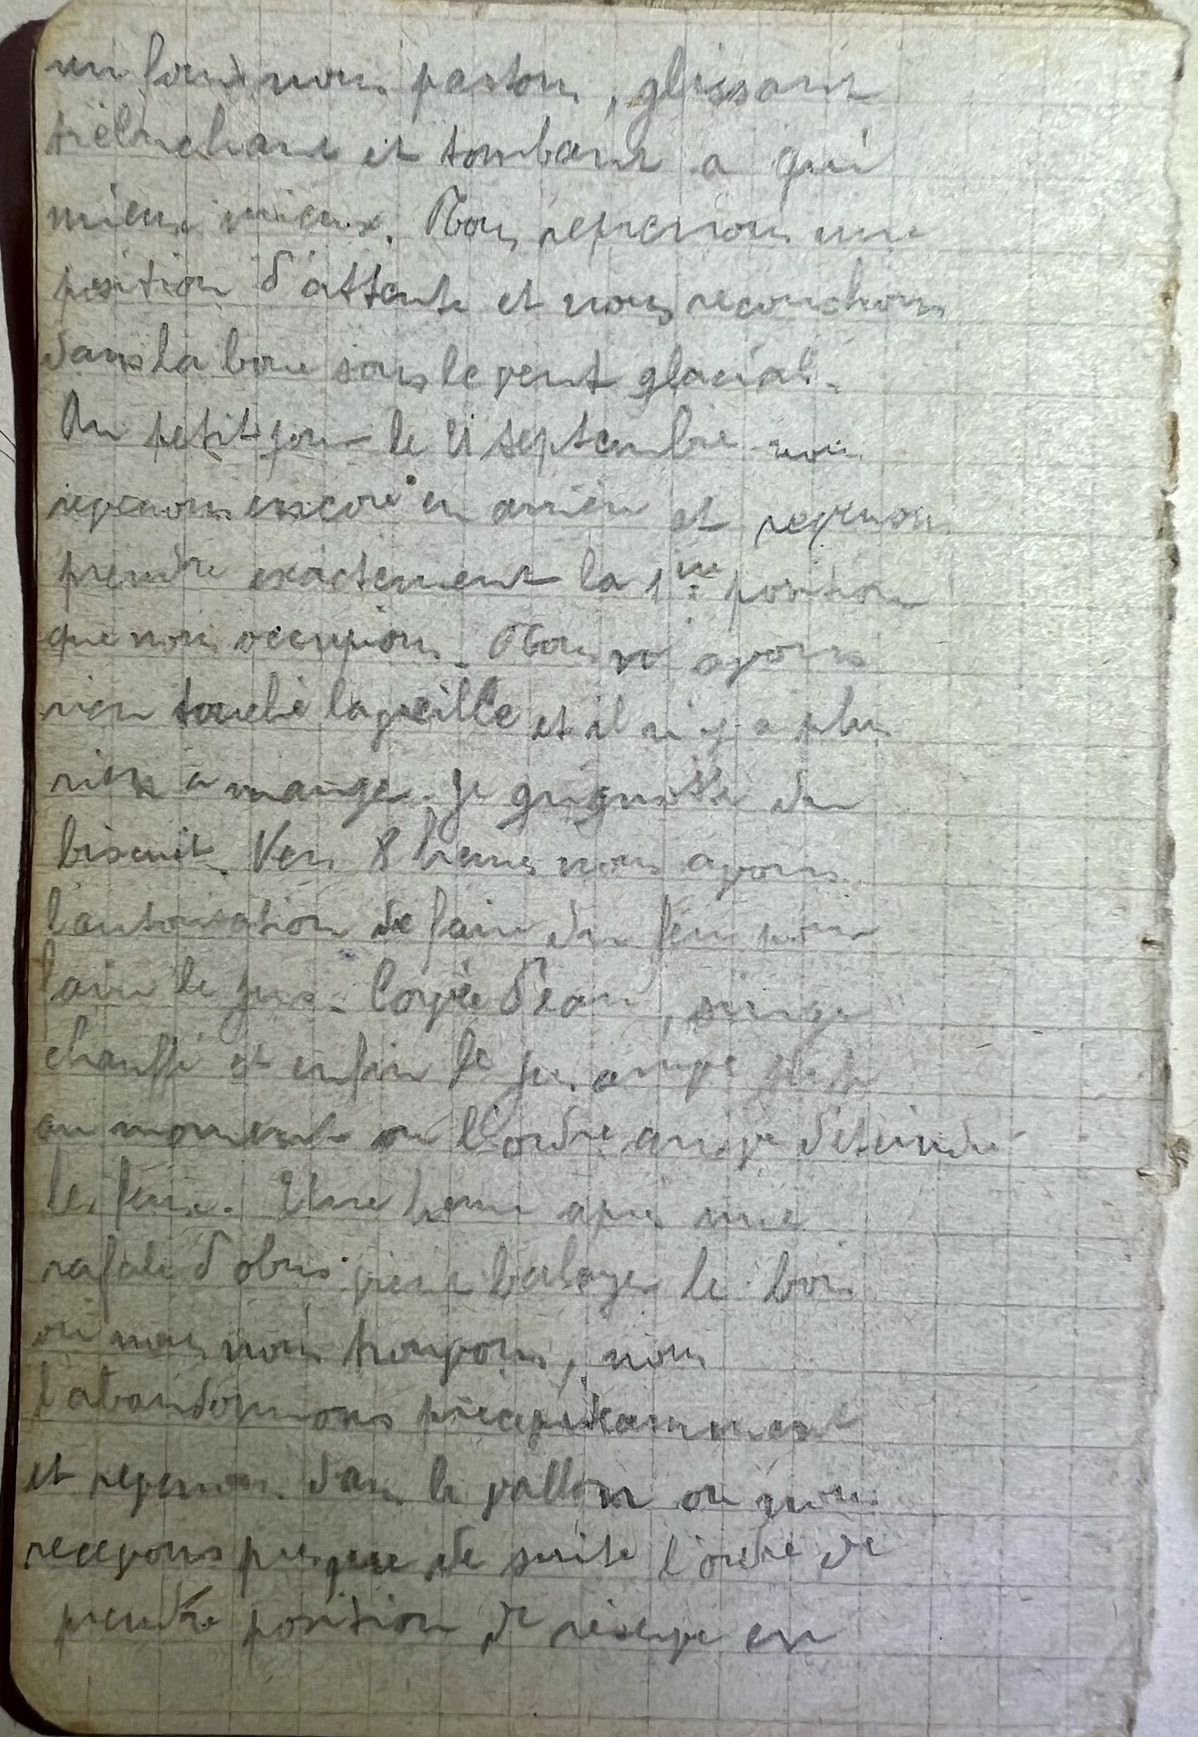 un four nous partons, glissant
trébuchant et tombant a qui
mieux mieux. Nous reprenons une
position d'attente et nous recouchons
dans la boue sous le vent glacial.
Au petit jour le 21 septembre nous
revenons encore en arrière et revenons
prendre exactement la 1ère position
que nous occupions. Nous n'avons
rien touché la veille et il n'y a plus
rien a manger. Je grignotte du
biscuit. Vers 8 heures nous avons
l'autorisation de faire du feu pour
faire le jus. Corvée d'eau, singe
chauffé et enfin le jus arrive juste
au moment ou l'ordre arrive d'éteindre
les feux. Une heure apres une
rafale d'obus vient balayer le bois
ou nous nous trouvons, nous
l'abandonnons précipitamment
et revenons dans le vallon ou nous
recevons presque de suite l'ordre de
prendre position de réserve en